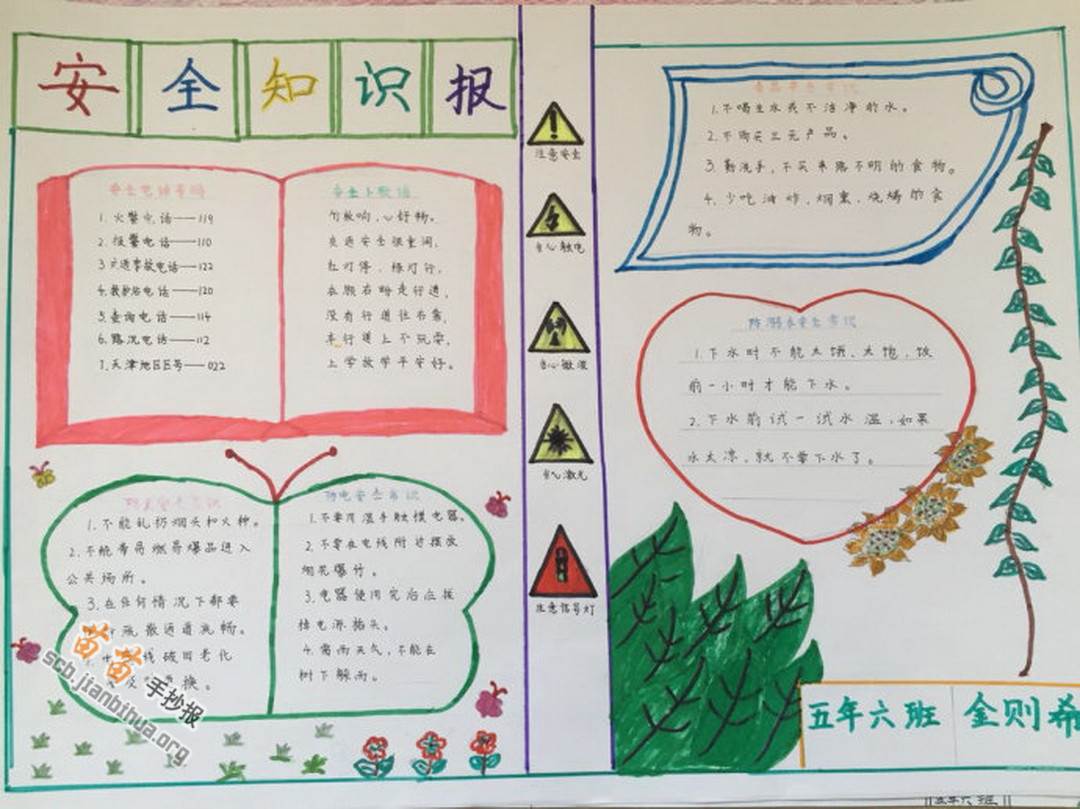 安全知识报
安全电话号码
1.火警电话——119
2.报警电话——110
3.交通事故电话——122
4.救护站电话——120
5.查询电话——114
6.路况电话——112
7.天津地区区号——022
安全上歌谣
勺敲响,心好畅。
交通安全很重词,
红灯停,绿灯行,
左顾右盼走行道,
没有行道往右靠,
车行道上不玩耍,
上学放学平安好。
防火安全常识
1.不能乱扔烟头和火种。
2.不能带易燃易爆品进入
公共场所。
3.在任何情况下都要
疏散通道流畅。
线破旧老化
换。
防电安全常识
1.不要用湿手触摸电器。
2.不要在电线附近摆放
烟花爆竹。
3.电器使用完后应拔
掉电源插头。
4.雷雨天气,不能在
树下躲雨。
注意安全
当心触电
当心微波
当心激光
注意信号灯
食品安全常识
1.不喝生水或不洁净的水。
2.不购买三无产品。
3.勤洗手,不买来路不明的食物。
4.少吃油炸、烟熏、烧烤的食
物。
防溺水安全常识
1.下水时不能太饿、太饱,饭
前一小时才能下水。
2.下水前试一试水温,如果
水太凉,就不要下水了。
五年六班 金则希
五年六班
苗苗手抄报
scb.jianbihua.org